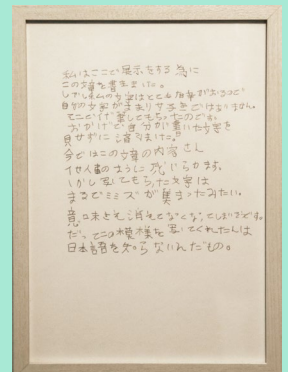 私はここで展示をする為に
この文章を書きました。
しかし私の文字はとても特徴があるので
自分の文字があまり好きではありません。
そこで代筆してもらったのです
おかげで自分が書いた文字を
見ずに済みました。
今ではこの文章の内容さえ
他人事のように感じられます。
しかし写してもらった文字は
まるでミミズが集まったみたい。
意味さえ消えてなくなってしまいそうです。
だってこの模様を写してくれた人は
日本語を知らないんだもの。